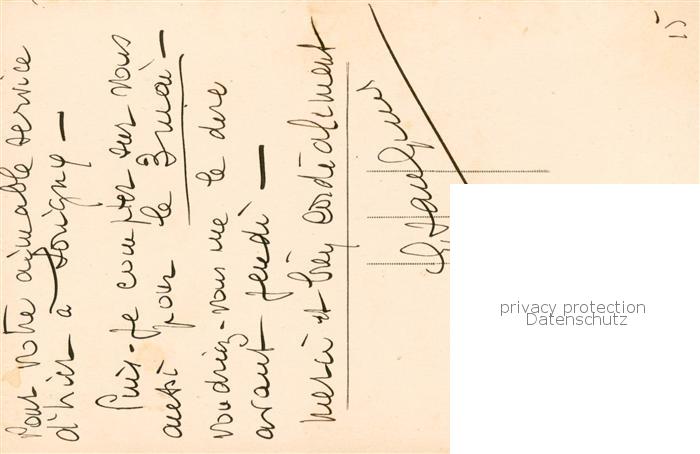 Pour votre aimable service
d'hier à Sorigny —
Puis-je compter sur vous
aussi pour le 3 mai —
voudriez-vous me le dire
avant jeudi —
merci et bien cordialement
15
privacy protection
Datenschutz